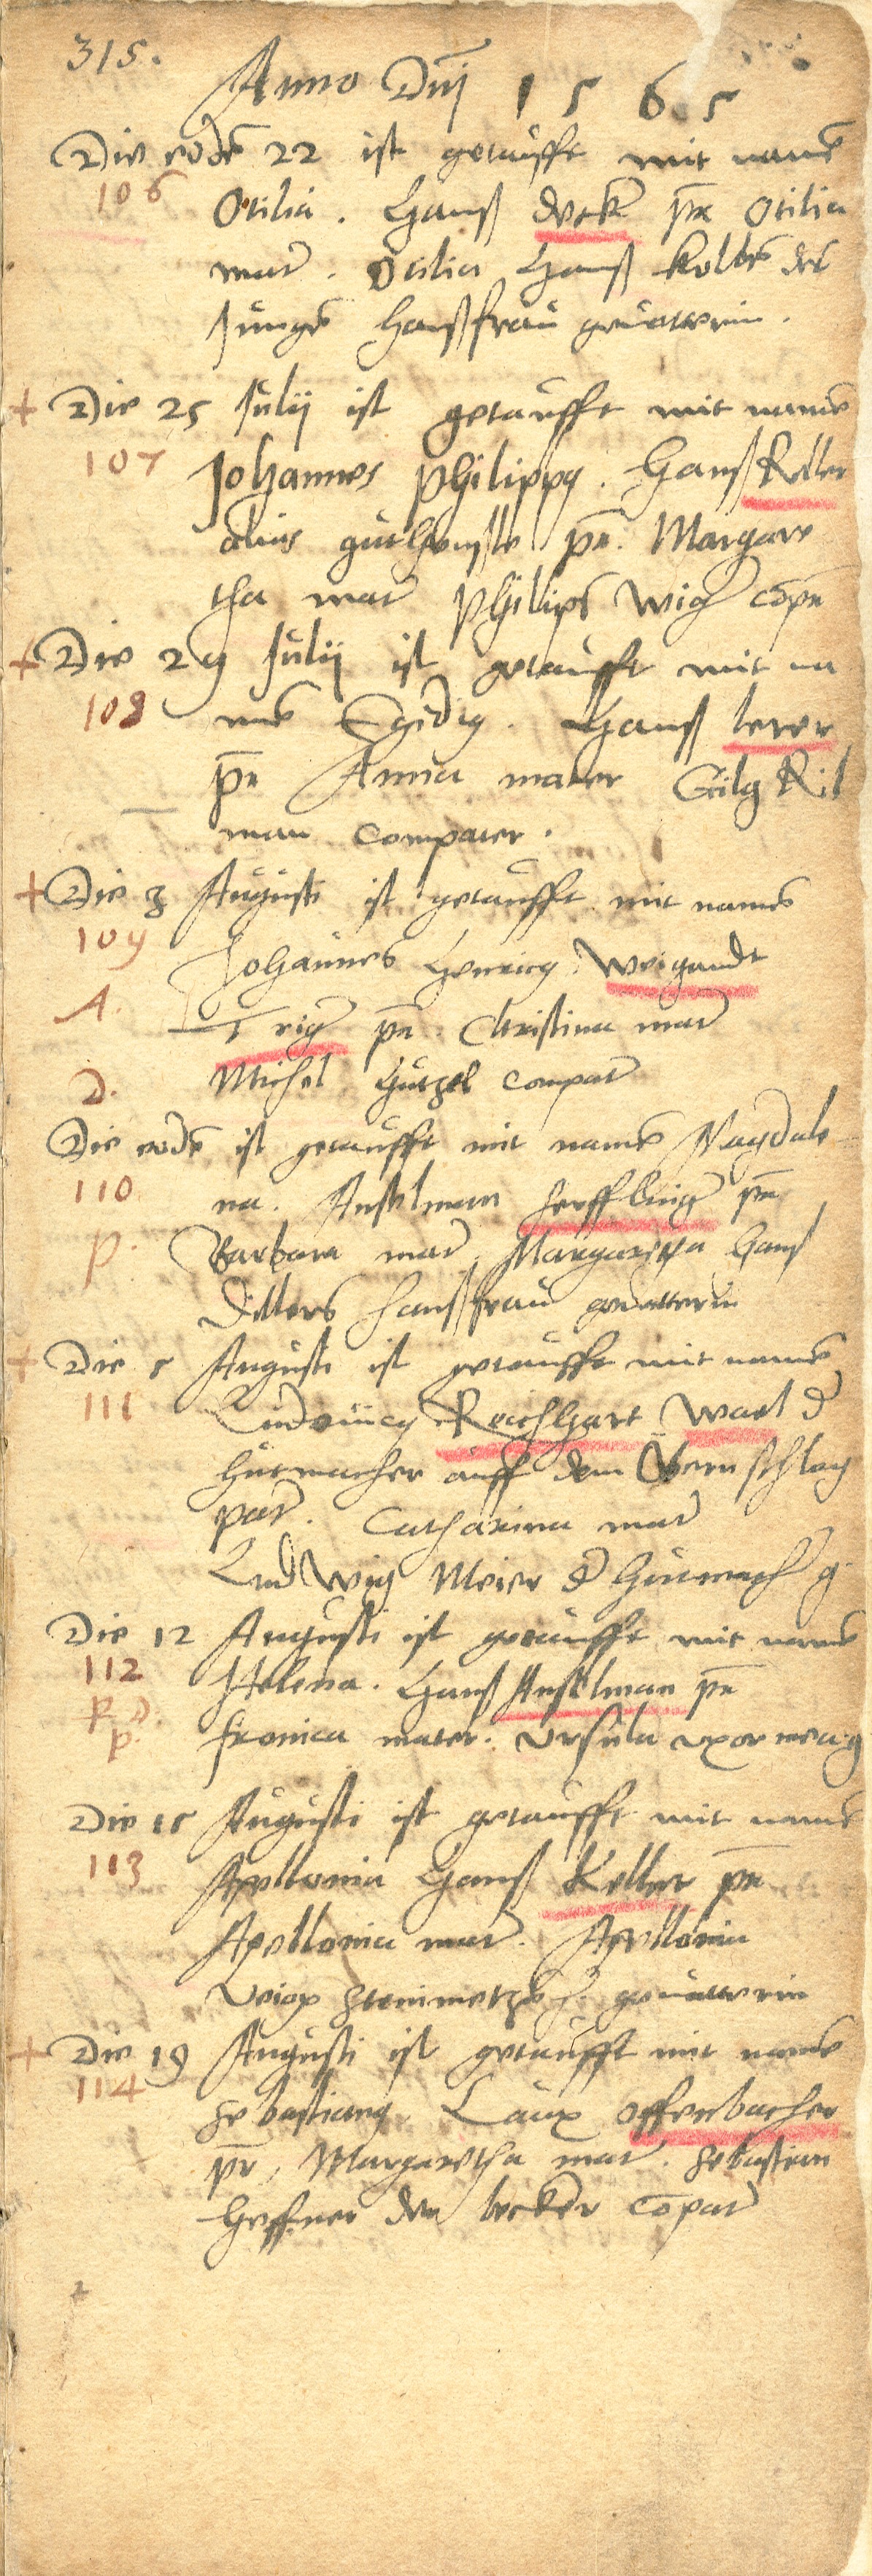 315.
Anno Dnj 1565
Die eodē 22 ist getaufft mit namē
106
Otilia. Hanß deck pr Otilia
mat̄. Otilia Hanß Kolbēs des
Jungē haußfraū geuatterin.
+ Die 25 Julij ist getaufft mit namē
107
Johannes Philippg. Hanß Keller
alias pr. Margare
tha mat̄ Philips Wiḡ Cōpr
+ Die 29 Julij ist getaufft mit na
108
mē Egidig. Hanß lerer
pr Anna mater Gilg Kil
man Compater.
+ Die 3 Augusti ist getaufft mit namē
109
Johannes Henricg. Weigandt
A.
Triḡ pr. Christina mat̄
Michel Hutzel Compat̄
D.
Die eodē ist getaufft mit namē Magdale
110
na. Anshelman herfflinḡ pr
p.
Barbara mat̄. Margaretha Hanß
Dillers haußfraū geuatterin
+ Die 5 Augusti ist getaufft mit namē
111
Ludouicg Reichhart Wael d̄
Hutmacher auff dem Obernschlag
pat̄. Catharina mat̄
Ludwig Meier d̄ Hutmach̄ g.
Die 12 Augusti ist getaufft mit namē
112
Helena. Hanß Anshelman pr
R. D.
p.
fronica mater. Vrsula vxor mea g
Die 15 Augusti ist getaufft mit namē
113
Apollonia Hanß Keller pr
Apollonia mat̄. Apollonia
Veiox Steinmetzē h. geuatterin
+ Die 19 Augusti ist getaufft mit namē
114
Sebastiang. Laux Offenbacher
pr, Margaretha mat̄. Sebastian
Heffner der becker Cōpat̄